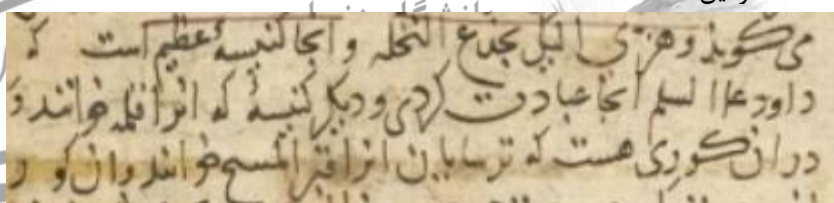 می کویند وهزی الیک بجذع النخله و انجا کنیسهٔ عظیم است که
داود علیه السلم انجا عبادت کردی و دیکر کنیسهٔ که انرا خوانند و
در ان کوری هست که ترسایان انرا قبر المسیح خوانند و ان کور